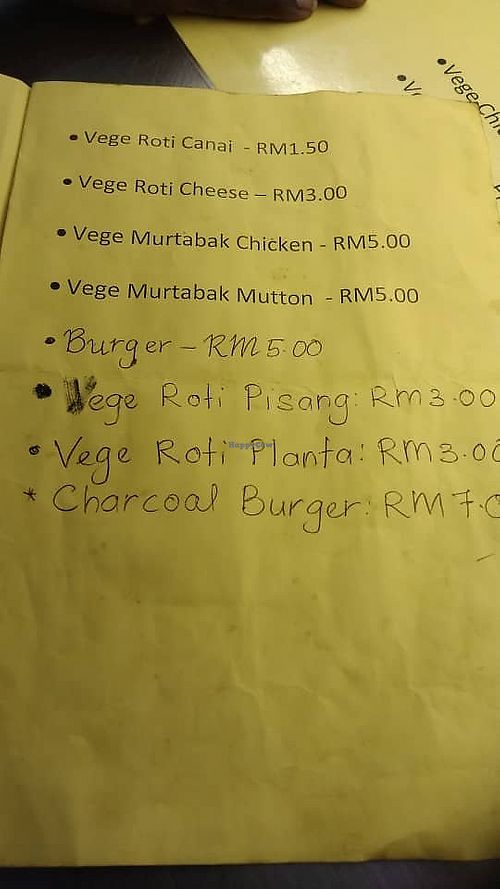 • Vege Roti Canai - RM1.50
• Vege Roti Cheese – RM3.00
• Vege Murtabak Chicken - RM5.00
• Vege Murtabak Mutton - RM5.00
• Burger – RM 5.00
• Vege Roti Pisang: Rm 3.00
• Vege Roti Planta: RM 3.00
* Charcoal Burger: RM 7.0
• Vege
HappyCow